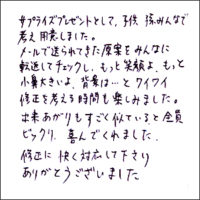 サプライズプレゼントとして、子供 孫みんなで
考え用意しました。
メールで送られてきた原案をみんなに
転送してチェックし、もっと笑顔よ、もっと
小鼻大きいよ、背景は…と ワイワイ
修正を考える時間も楽しみました。
出来あがりもすごく似ていると全員
ビックリ、喜んでくれました。
修正に 快く対応して下さり
ありがとうございました